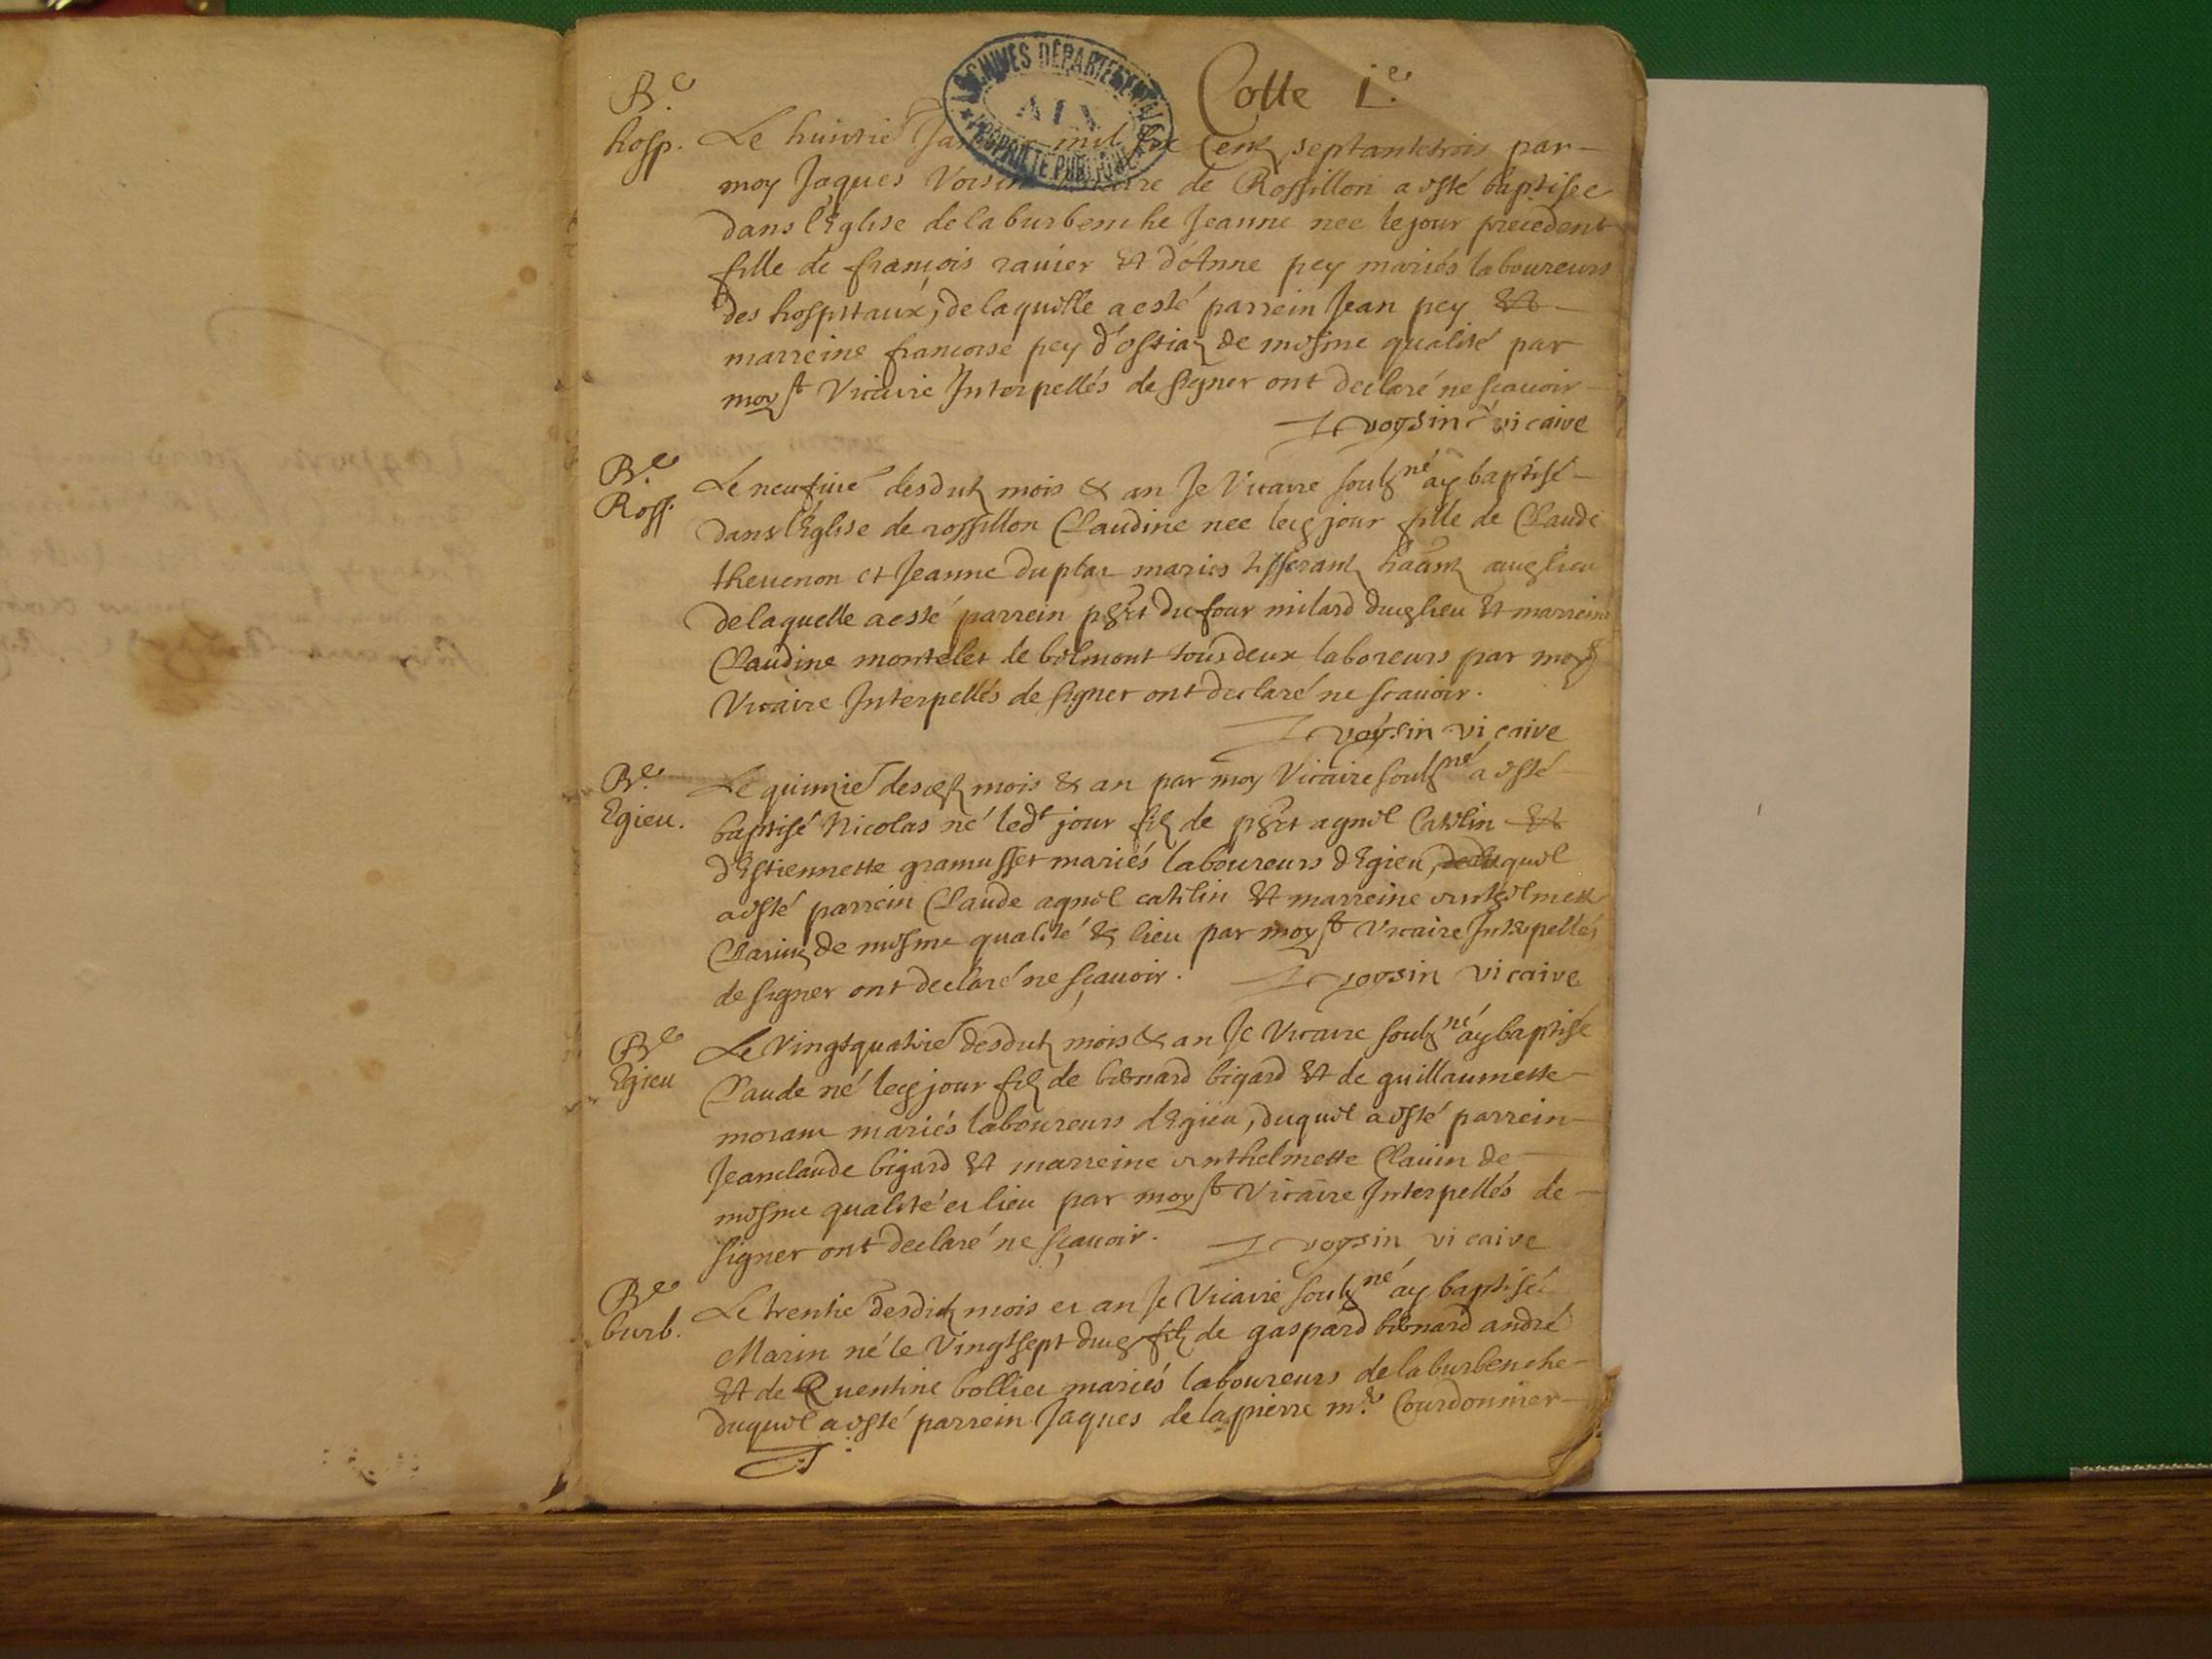 Cotte 1.e
ARCHIVES DÉPARTEMENTALES
AIN
PROPRIÉTÉ PUBLIQUE
B.e
hosp.
Le huitie Jan mil six Cent septantetrois par
moy Jaques Voisin vicaire de Rossillon a esté baptisee
dans l'Eglise de la burbenche Jeanne nee le jour precedent
fille de françois ravier Et d'Anne pey mariés laboureurs
des hospitaux, de laquelle a esté parrein Jean pey Et
marreine francoise pey d'ostiaz de mesme qualité par
moy st Vicaire Interpellés de signer ont declaré ne scavoir
voysin vicaire
B.e
Ross.
Le neufvie desdits mois & an Je Vicaire soubsné ay baptisé
dans l'Eglise de rossillon Claudine nee led jour fille de Claude
thevenon et Jeanne duplar mariés tisserants lieu
de laquelle a esté parrein du four milard lieu Et marreine
Claudine montelet de belmont tous deux laboreurs par moy st
Vicaire Interpellés de signer ont declaré ne scavoir.
voysin vicaire
B.e
Egieu.
Le quinzie mois & an par moy Vicaire soubsné a esté
baptisé Nicolas né ledt jour fils de agnel Catelin Et
d'Estiennette gramusset mariés laboureurs d'Egieu, duquel
a esté parrein Claude agnel catelin Et marreine
de mesme qualité & lieu par moy st Vicaire Interpellés
de signer ont declaré ne sçavoir. voysin vicaire
B.e
Egieu
Le Vingtquatrie desdits mois & an Je Vicaire soubsné ay baptisé
Claude né led jour fils de bernard bigard Et de guillaumette
mariés laboureurs d'Egieu, duquel a esté parrein
Jeanclaude bigard Et marreine anthelmette Clavin de
mesme qualité et lieu par moy st Vicaire Interpellés de
signer ont declaré ne sçavoir. voysin vicaire
B.e
burb.
Le trentie desdits mois et an Je Vicaire soubsné ay baptisé
Marin né le Vingtsept fils de gaspard bernard andré
Et de Quentine bolliet mariés laboureurs de la burbenche
duquel a esté parrein Jaques de lapierre m.e Courdonnier